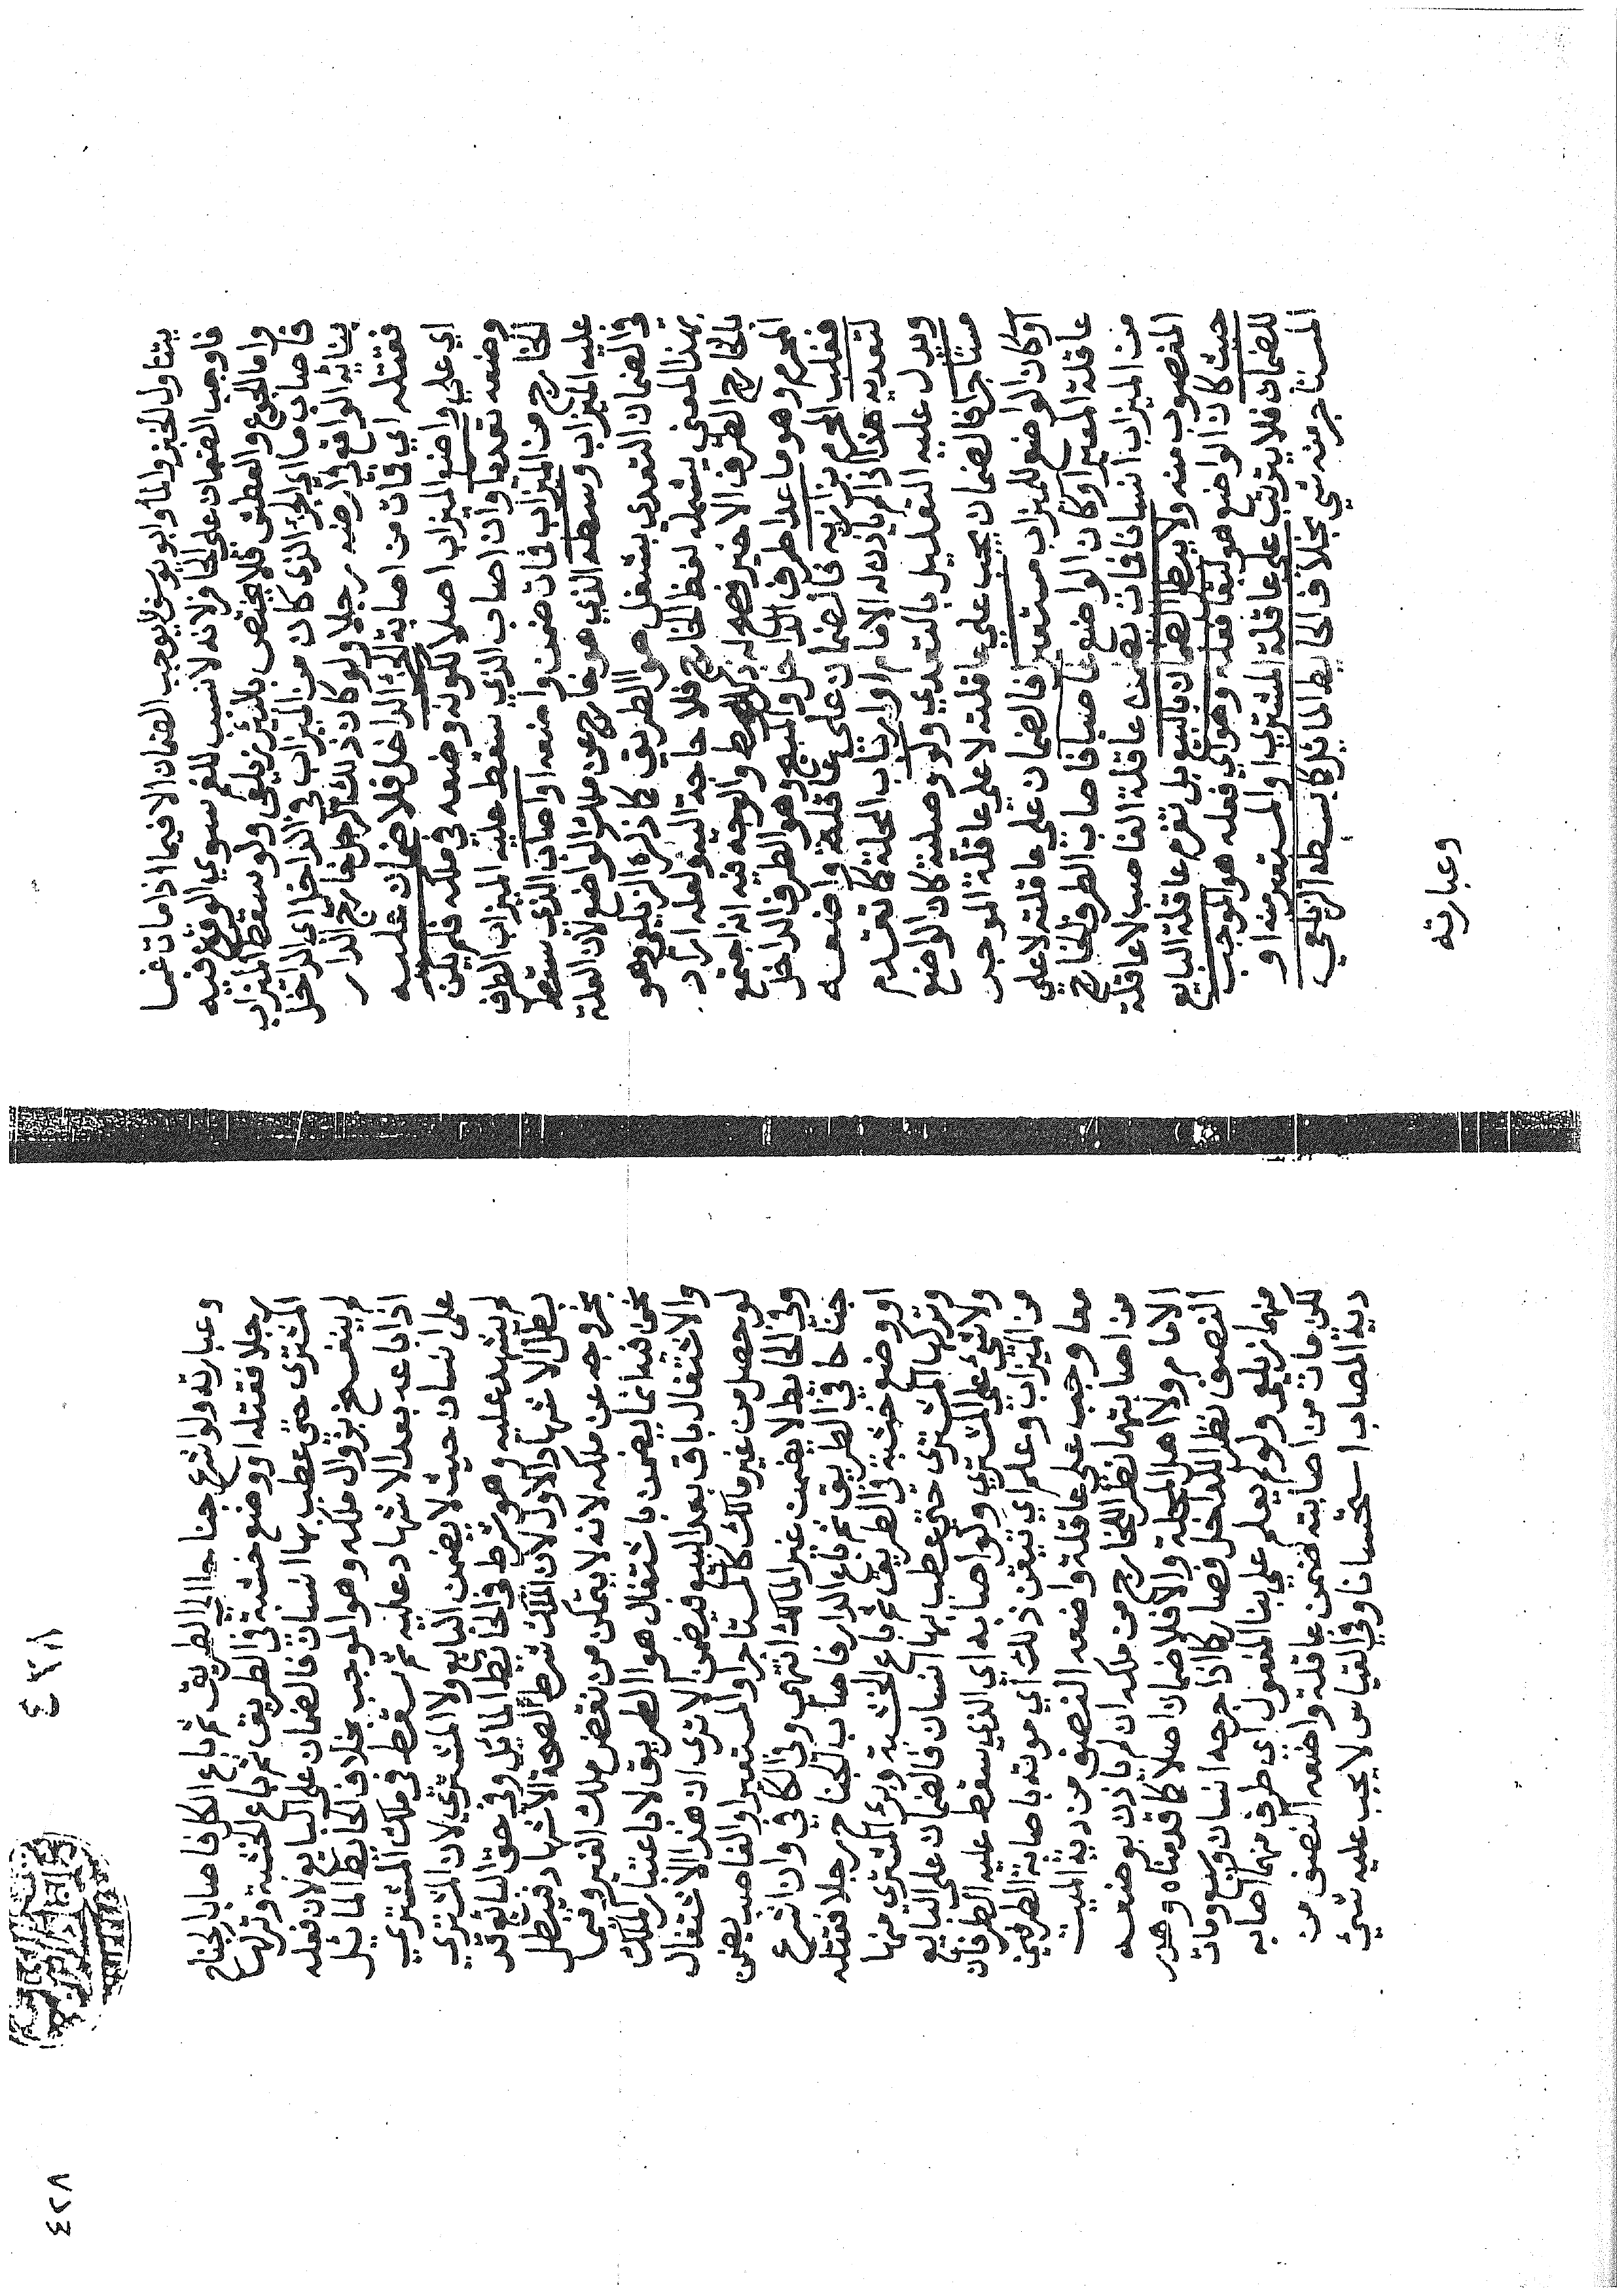 يتناول الخبز والماء وابو يوسف لا يوجب الضمان الا فيما اذا مات غما
فاوجب الضمان على الحافر لانه لا سبب للغم سوي الوقوع فيه
واما الجوع والعطش فلا يختص بالبئر زيلعي ولو سقط الميزاب
فاصاب ما اي الجزء الذي كان من الميزاب في الداخل اي الداخل
بنائه الواقع في ارضه رجلا ولو كان ذلك الرجل خارج الدار
فقتله اي فمات من اصابة الجزء الداخل فلا ضمان عليه
اي علي واضع الميزاب اصلا لكونه وضعه في ملكه فلم يكن
وضعه تعديا وان اصاب الذي سقط عليه الميزاب الطرف
الخارج من الميزاب فمات ضمن واضعه او اصاب الذي سقط
عليه الميزاب وسطه الذي هو خارج عن ملك الواضع لان العلة
في الضمان التعدي بشغل هوا الطريق كما ذكره الزيلعي وهو
بهذا المعني يشمله لفظ الخارج فلا حاجة اليه ولعله اراد
بالخارج الطرف الاخير فصح له ذكر الوسط والوجه فيه انه اجتمع
المحرم وهو ما عدا طرف الداخل والمبيح وهو الطرف الداخل
فغلب المحرم بزازيه فالضمان علي عاقلة واضعه
لتعديه هذا اذا لم ياذن له الامام او ارباب المحلة كما تقدم
ويدل عليه التعليل بالتعدي ولو وصلية كان الواضع
مستاجرا فالضمان يجب علي عاقلته لا علي عاقلة الموجر
او كان الواضع للميزاب مستعيرا فالضمان علي عاقلته لا علي
عاقلة المعير او كان الواضع غاصبا فاصاب الطرف الخارج
من الميزاب انسانا فمات يضمن عاقلة الغاصب لا عاقلة
المغصوب منه ولا يبطل الضمان بالبيع بل تغرم عاقلة البايع
حيث كان الواضع هو لبقا فعله وهو اي فعله هو الموجب
للضمان فلا يترتب علي عاقلة المشتري او المستعير منه او
المستاجر منه شي بخلاف الحايط المائل كما بسطه الزيلعي
وعبارته
وعبارته ولو اشرع جناحا الي الطريق ثم باع الكل فاصاب الجناح
رجلا فقتله او وضع خشبة في الطريق ثم باع الخشبة وتركها
المشتري حتى عطب بها انسان فالضمان علي البايع لان فعله
لم ينفسخ بزوال ملكه وهو الموجب بخلاف الحايط المائل
اذا باعه بعد الاشهاد عليه ثم سقط في ملك المشتري
على انسان حيث لا يضمن البايع ولا المشتري لان المشتري
لم يشهد عليه وهو شرط في الحائط المائل وفي حق البائع قد
بطل الاشهاد الاول لان الملك شرط لصحة الاشهاد فيبطل
بخروجه عن ملكه لانه لا يتمكن من نقض ملك الغير وفيما
نحن فيه انما يضمن باشتغال هوا الطريق لا باعتبار الملك
والاشتغال باق بعد البيع فيضمن الا ترى ان هذا الاشتغال
لو حصل من غير مالك كالمستاجر والمستعير والغاصب يضمن
وفي الحايط لا يضمن غير المالك انتهي وفي الكافي وان اشرع
جناحا في الطريق ثم باع الدار فاصاب الجناح رجلا فقتله
او وضع خشبة في الطريق ثم باع الخشبة وبرئ المشتري منها
وتركها المشتري حتي عطب بها انسان فالضمان علي البايع
ولا شئ علي المشتري ولو اصابه اي الذي سقط عليه الطرفان
من الميزاب وعلم اي تيقن ذلك اي موته باصابة الطرفين
معا وجب علي عاقلة واضعه النصف من دية الميت
من اصابتهما نظر اللخارج من ملكه ان لم ياذن بوضعه
الامام ولا اهل المحلة والا فلا ضمان اصلا كما قدمناه وهدر
النصف نظر اللداخل فصار كما اذا جرحه انسان وسبع ومات
منهما زيلعي ولو لم يعلم علي بنا المفعول اي طرف منهما اصابه
لكن مات من اصابته ضمن عاقلة واضعه النصف من
دية المصاب استحسانا وفي القياس لا يجب عليه شئ
٤٢٨